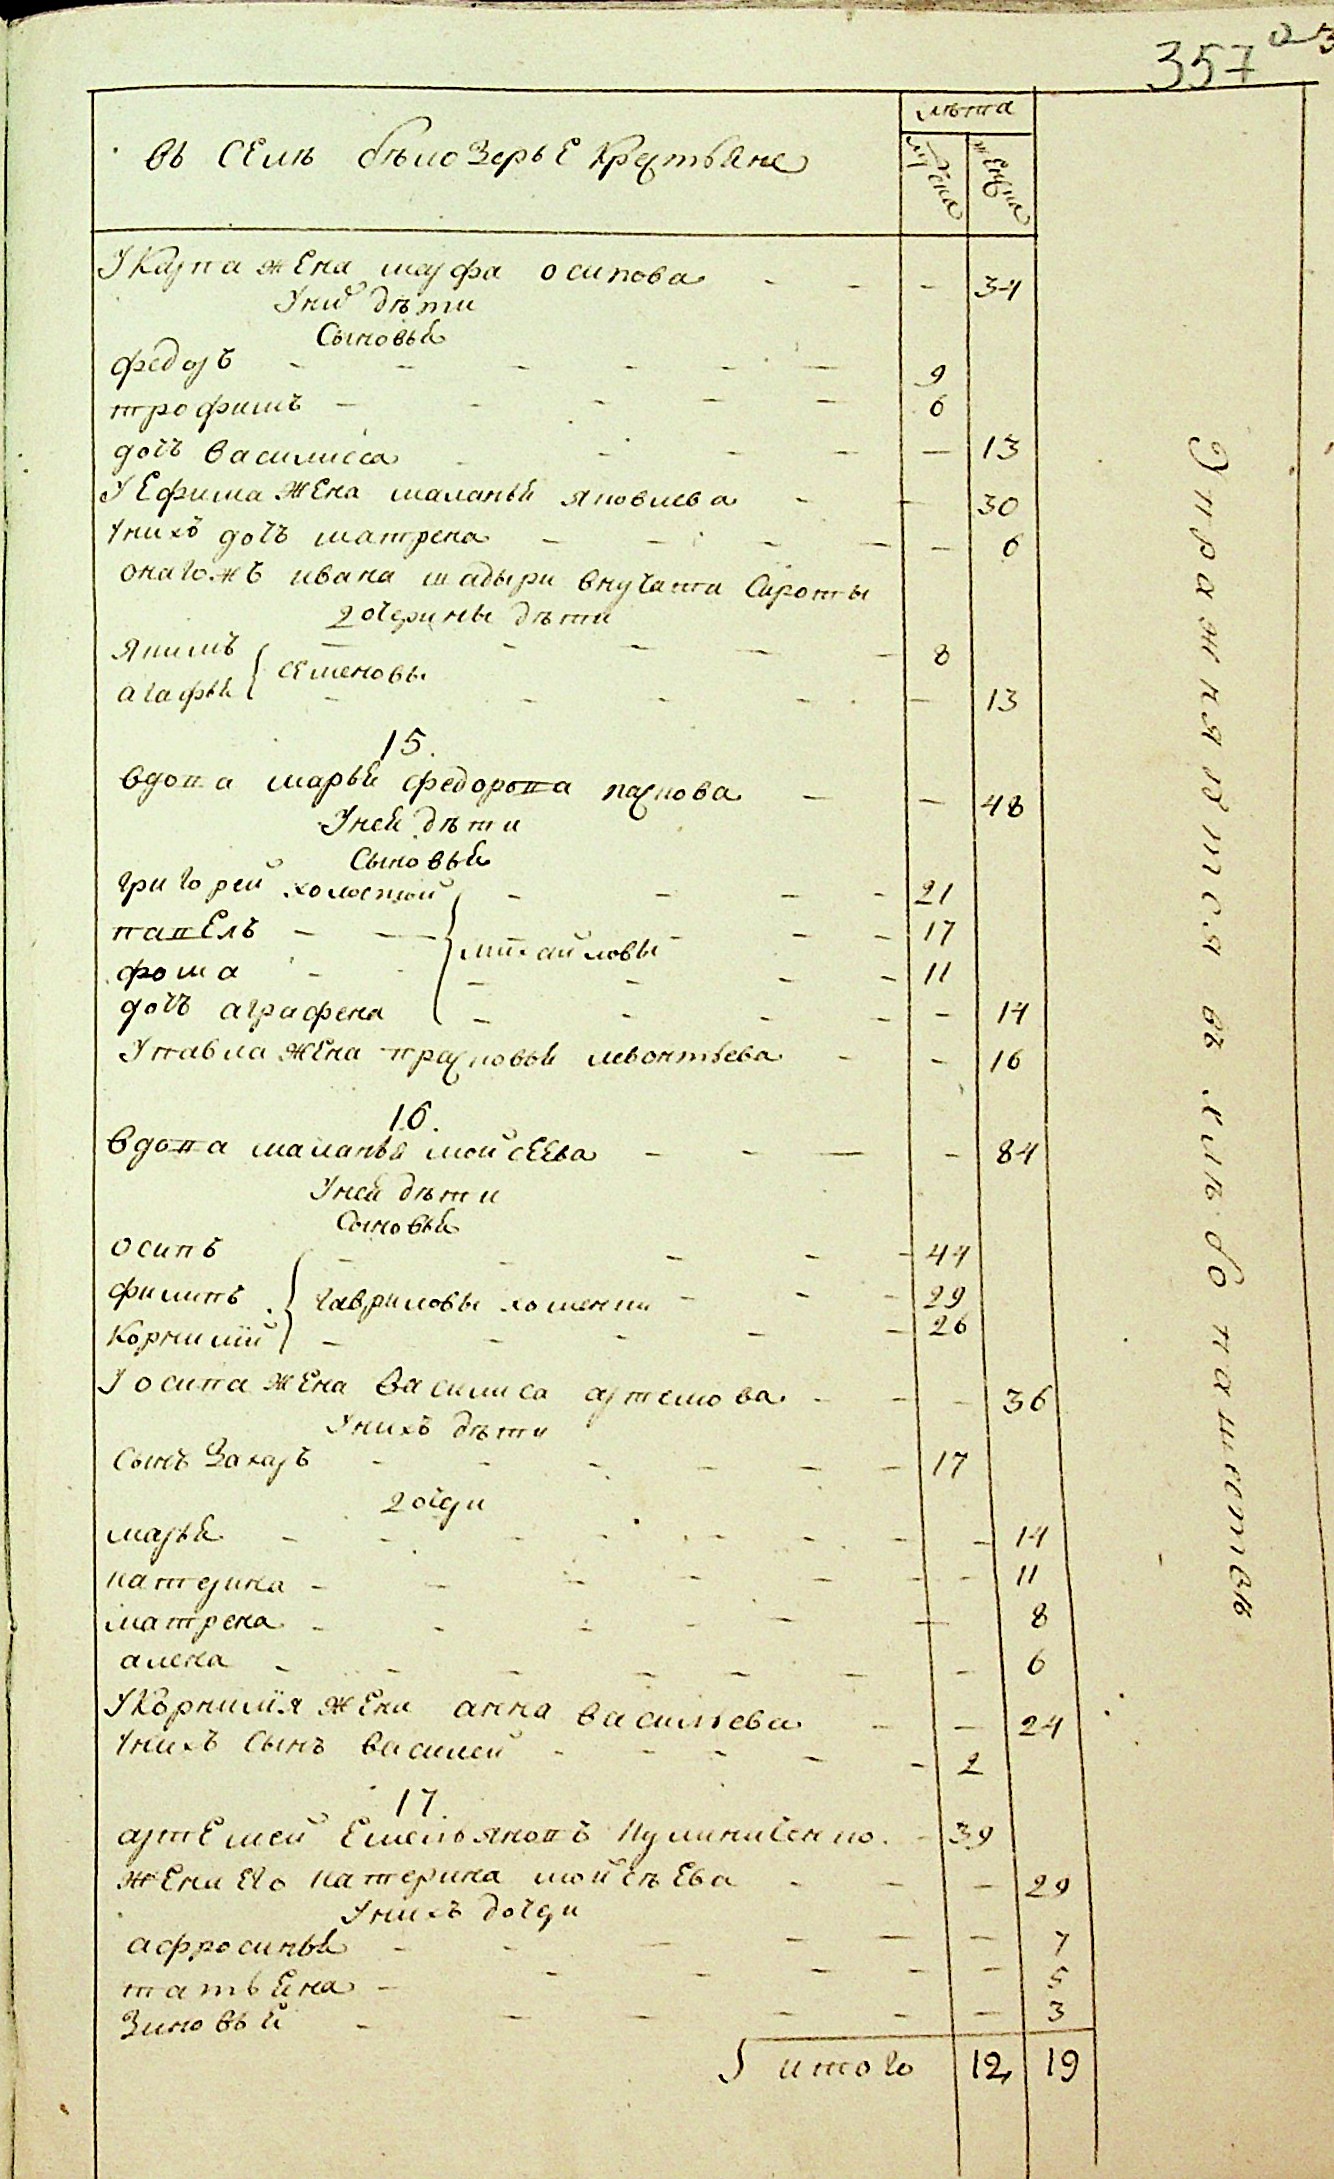 357
лѣта
въ селѣ бѣлозерьѣ крестьяне
мужеска
женска
У Карпа жена марфа осипова - - - 34
У них дѣти
Сыновья
федоръ - - - - - - 9
трофимъ - - - - - 6
дочь василиса - - - - - 13
У Ефима жена маланья яковлева - - 30
У нихъ дочь матрена - - - - - 6
онагожъ ивана шадыри внучата сироты
дочерины дѣти
якимъ - - - - - 8
семеновы
агафья - - - - - - 13
15.
вдова марья федорова паскова - - 48
У ней дѣти
Сыновья
григорей холостой - - - - 21
павелъ - - - - - 17
михайловы
фома - - - - - 11
дочь аграфена - - - - - 14
У павла жена прасковья левонтьева - - 16
16.
вдова маланья мойсеева - - - - 84
У ней дѣти
Сыновья
осипъ - - - - - 44
филипъ - - - 29
гавриловы хоменки
корнилий - - - - - 26
У осипа жена василиса артемова - - - 36
У нихъ дѣти
сынъ захаръ - - - - - - 17
дочери
марья - - - - - - - - 14
катерина - - - - - - - 11
матрена - - - - - - 8
алена - - - - - - - 6
У корнилия жена анна васильева - - 24
У нихъ сынъ василей - - - - - 2
17.
артемей емельяновъ куминиченко. - 39
жена его катерина мойсѣева - - - 29
У нихъ дочери
афросинья - - - - - - 7
татьяна - - - - - - 5
зиновья - - - - - - 3
итого 12, 19
Упражняются въ хлѣбопашествѣ